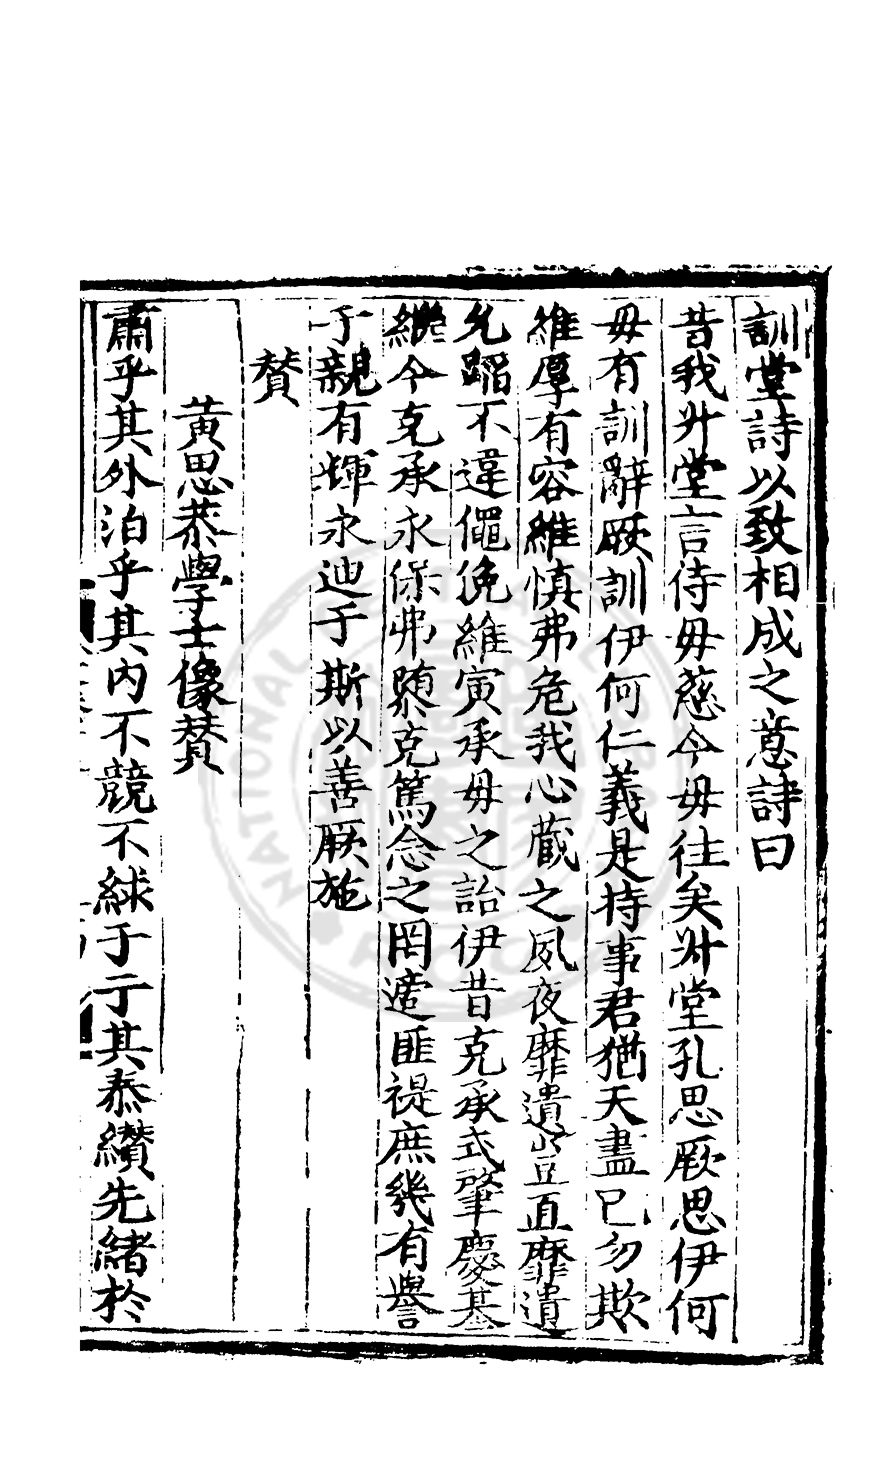 訓堂詩以致相成之意詩曰
昔我升堂言侍毋慈今毋往矣升堂孔思厥思伊何
毋有訓辭厥訓伊何仁義是持事君猶天盡已勿欺
維厚有容維慎弗危我心藏之夙夜靡遺豈直靡遺
允蹈不違僶俛維寅承毋之詒伊昔克承式肇慶基
繼今克承永保弗隳克篤念之罔遾匪禔庶幾有譽
于親有煇永迪于斯以善厥施
賛
黃思恭學士像賛
肅乎其外泊乎其内不競不絿于于其恭纘先緒於